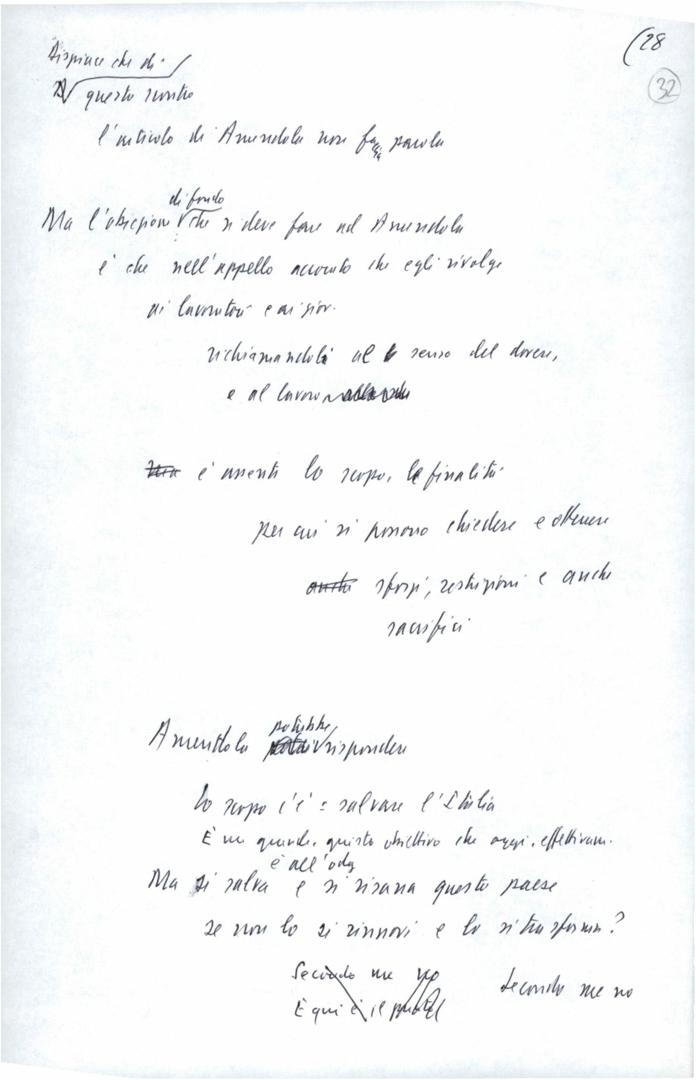 (28
32
Dispiace che di
questo scontro
l'articolo di Amendola non faccia parola
di fondo
Ma l'obiezione che si deve fare ad Amendola
è che nell'appello accorato che egli rivolge
ai lavoratori e ai giov.
richiamandoli al senso del dovere,
e al lavoro
è assente lo scopo, la finalità
per cui si possono chiedere e ottenere
anche sforzi, restrizioni e anche
sacrifici
potrebbe
Amendola rispondere
lo scopo c'è = salvare l'Italia
È un grande, giusto obiettivo che oggi, effettivam.
è all'odg
Ma si salva e si risana questo paese
se non lo si rinnovi e lo si trasforma?
Secondo me no Secondo me no
E qui è il